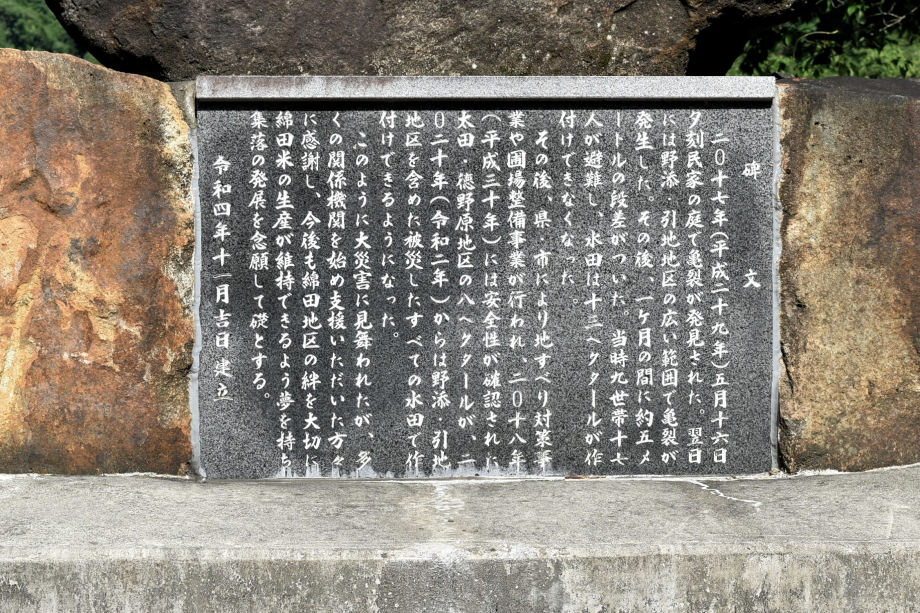 碑文
二〇十七年(平成二十九年)五月十六日
夕刻民家の庭で亀裂が発見された。翌日
には野添・引地地区の広い範囲で亀裂が
発生した。その後、一ケ月の間に約五メ
ートルの段差がついた。当時九世帯十七
人が避難し、水田は十三ヘクタールが作
付けできなくなった。
その後、県・市により地すべり対策事
業や圃場整備事業が行われ、二〇十八年
(平成三十年)には安全性が確認された
太田・徳野原地区の八ヘクタールが、二
〇二十年(令和二年)からは野添・引地
地区を含めた被災したすべての水田で作
付けできるようになった。
このように大災害に見舞われたが、多
くの関係機関を始め支援いただいた方々
に感謝し、今後も綿田地区の絆を大切に
綿田米の生産が維持できるよう夢を持ち
集落の発展を念願して礎とする。
令和四年十一月吉日 建立